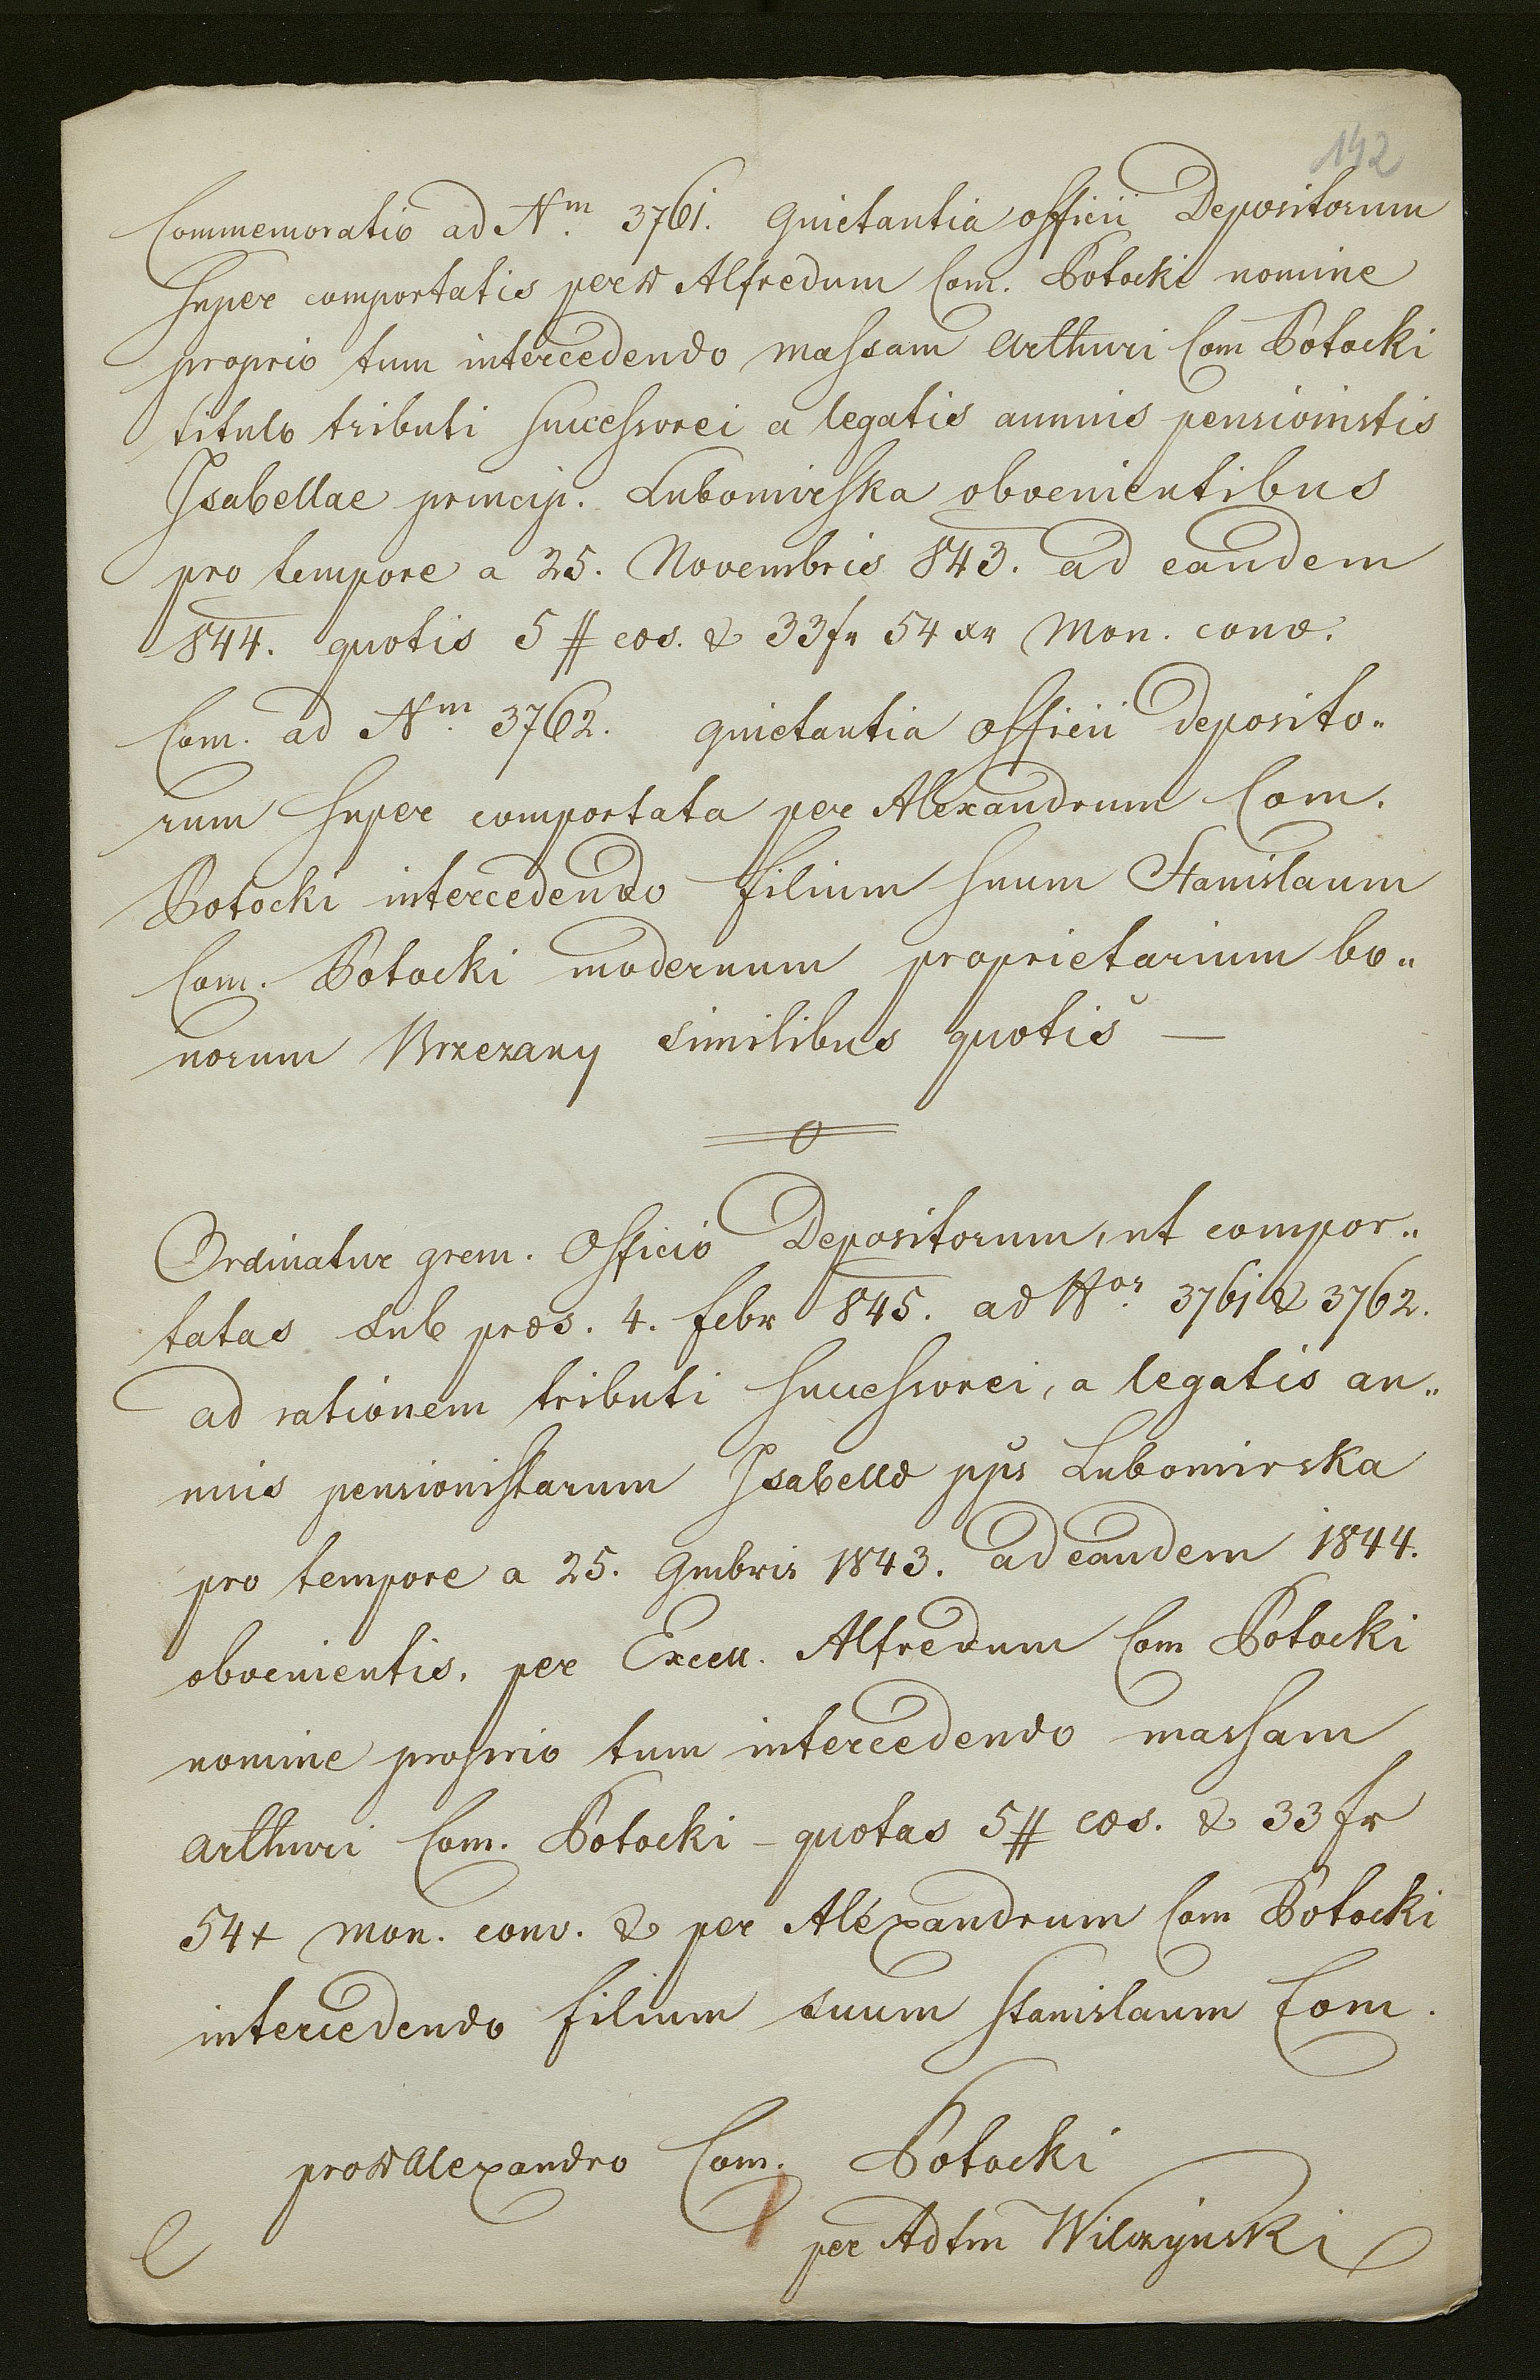 142
Commemoratio ad Nm. 3761. Quietantia officii Depositorum
super comportatis per Alfredum Com. Potocki nomine
proprio tum intercedendo massam Arthuri Com Potocki
titulo tributi successorei a legatis annuis pensionistis
Isabellae princip. Lubomirska obvenientibus
pro tempore a 25. Novembris 843. ad eandem
844. quotis 5 # cæs. & 33 fr 54 xr Mon. conv.
Com. ad Nm. 3762. quietantia officii deposito„
rum super comportata per Alexandrum Com.
Potocki intercedendo filium suum Stanislaum
Com. Potocki modernum proprietarium bo„
norum Brzezany similibus quotis —
Ordinatur grem. Officio Depositorum, ut compor„
tatas sub præs. 4. febr 845. ad Nor. 3761 & 3762.
ad rationem tributi successorei, a legatis an„
nuis pensionistarum Isabellæ ppis Lubomirska
pro tempore a 25. 9mbris 1843. ad eandem 1844.
obvenientis, per Excell. Alfredum Com Potocki
nomine proprio tum intercedendo massam
Arthuri Com. Potocki – quotas 5 # cæs. & 33 fr
54 x Mon. conv. & per Alexandrum Com Potocki
intercedendo filium suum Stanislaum Com.
pro Alexandro Com. Potocki
per Adtm Wilczynski